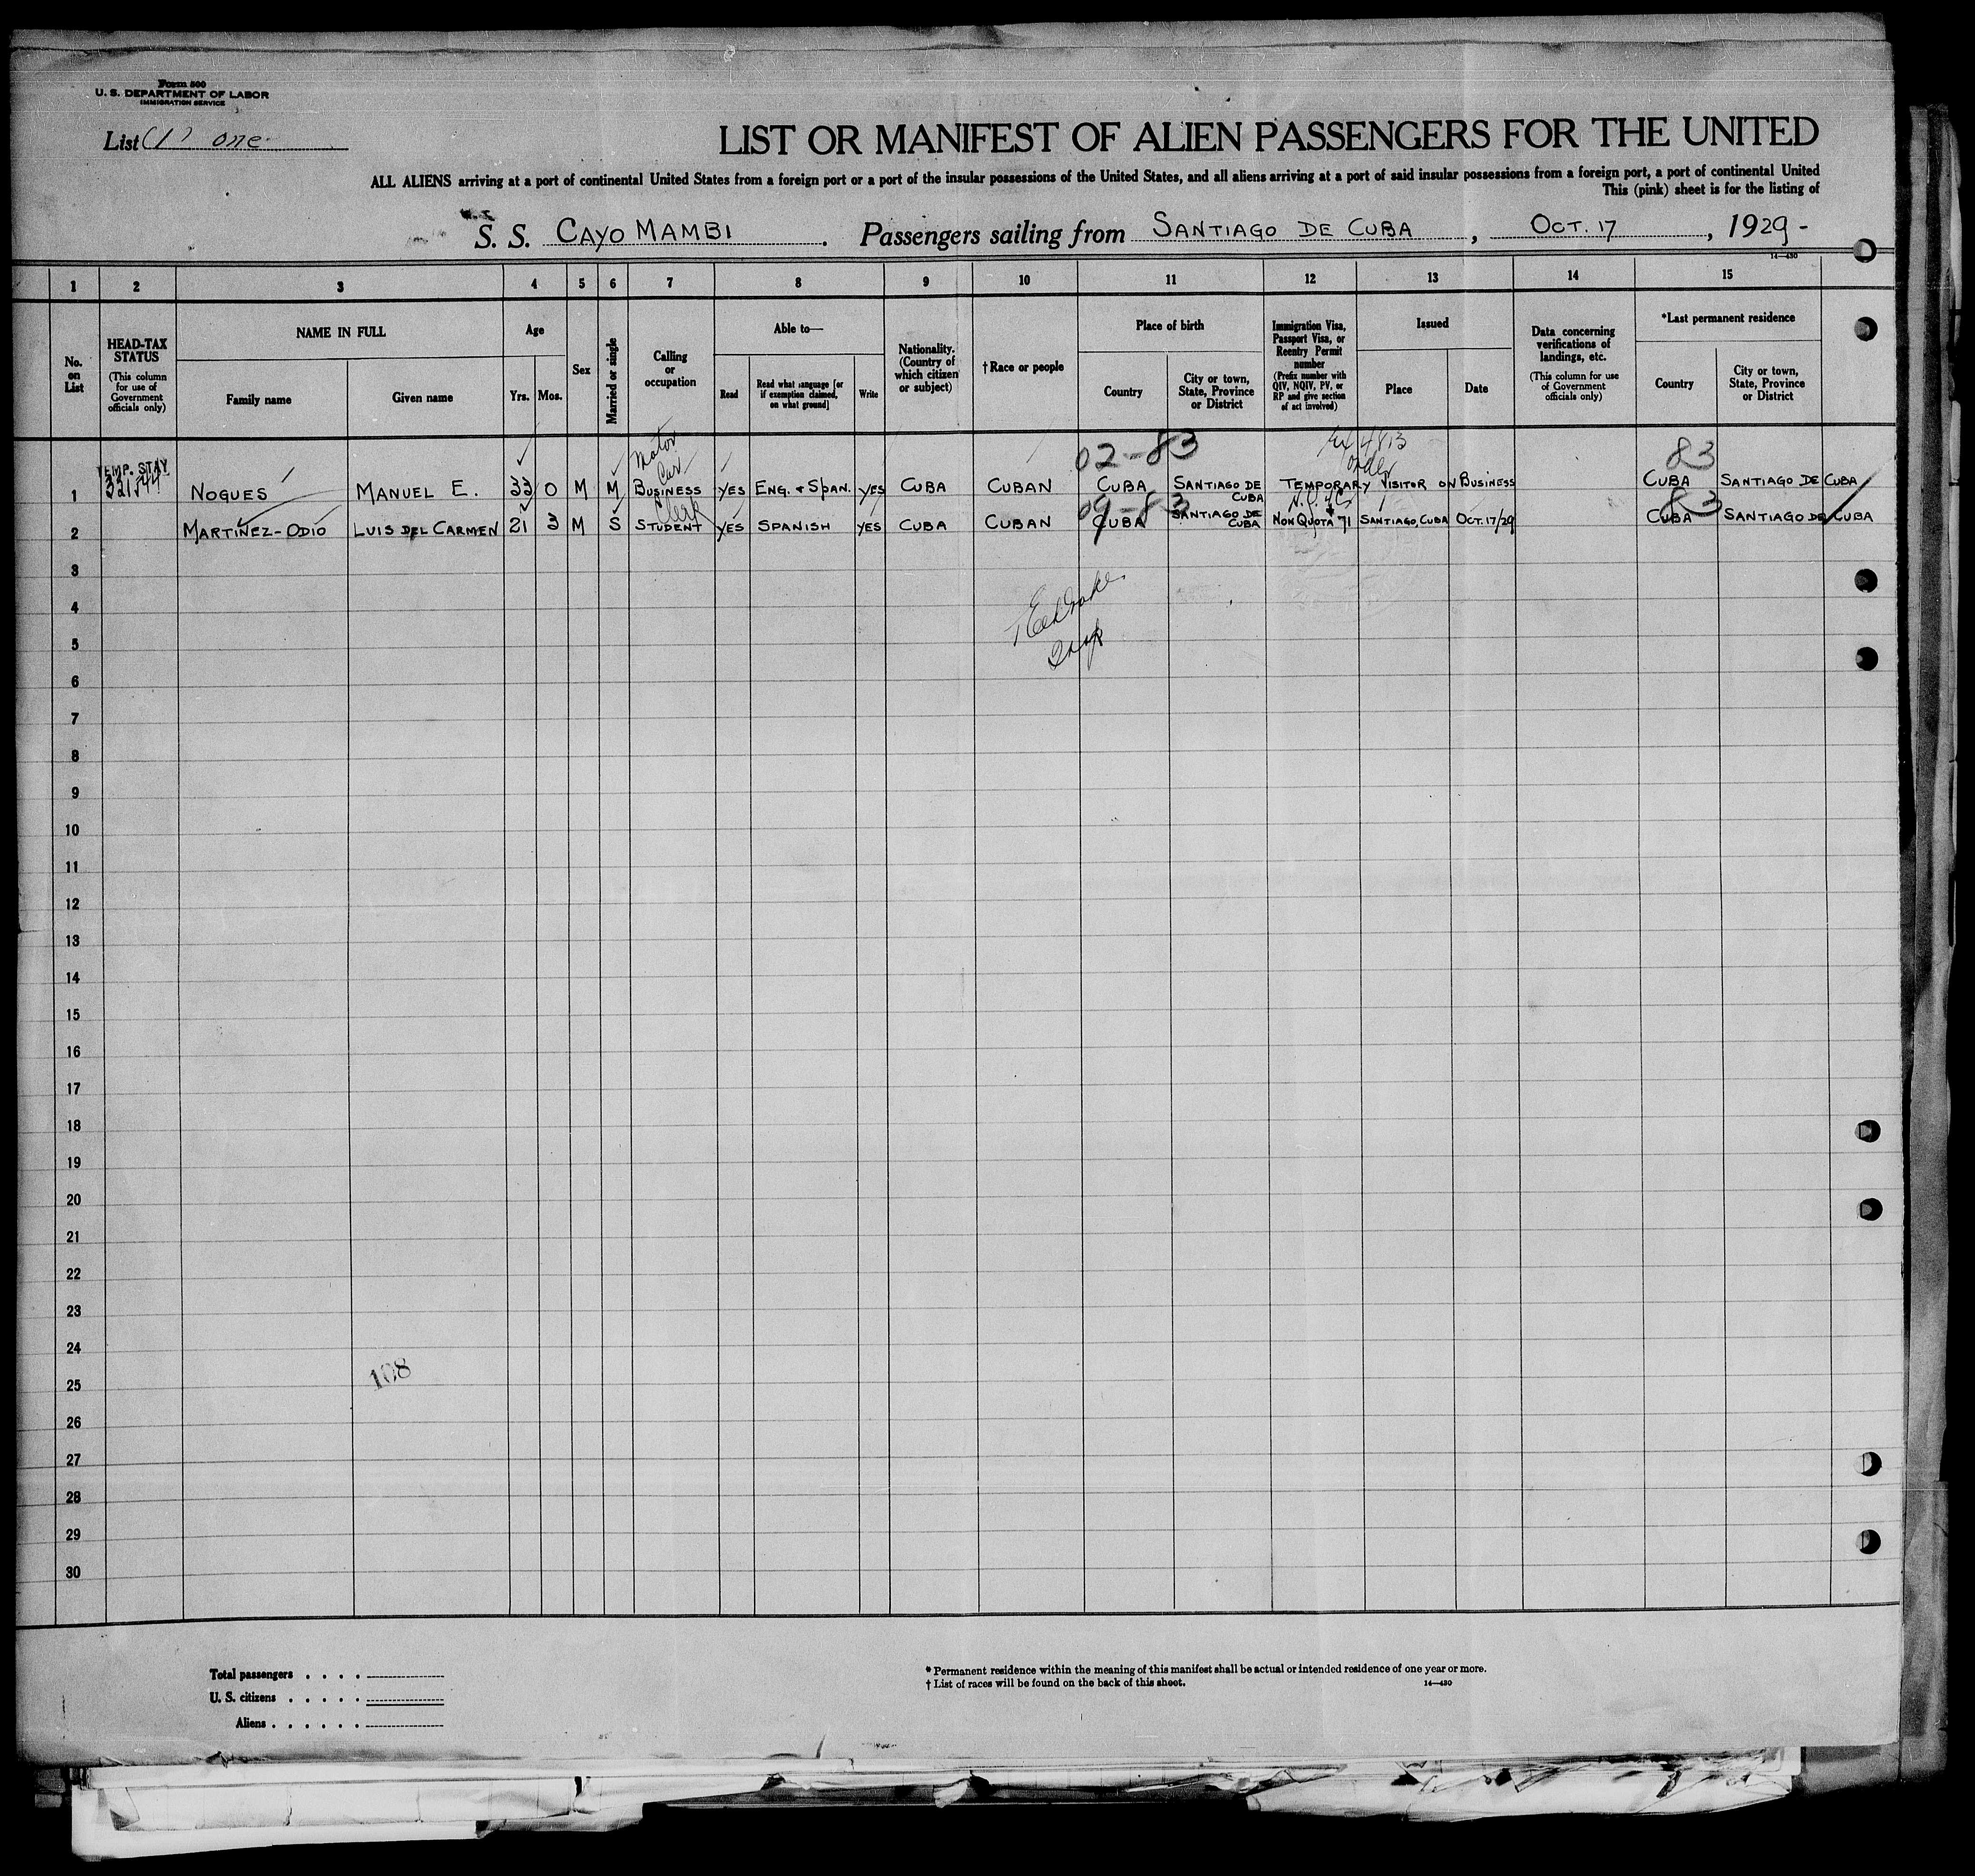 Form 500
U. S. DEPARTMENT OF LABOR
IMMIGRATION SERVICE
List (1) one
LIST OR MANIFEST OF ALIEN PASSENGERS FOR THE UNITED
ALL ALIENS arriving at a port of continental United States from a foreign port or a port of the insular possessions of the United States, and all aliens arriving at a port of said insular possessions from a foreign port, a port of continental United
This (pink) sheet is for the listing of
S. S. CAYO MAMBI. Passengers sailing from SANTIAGO DE CUBA, OCT. 17, 1929-
14—430
1 2 3 4 5 6 7 8 9 10 11 12 13 14 15
No. on List
HEAD-TAX STATUS
(This column for use of Government officials only)
NAME IN FULL
Family name
Given name
Age
Yrs. Mos.
Sex
Married or single
Calling or occupation
Able to—
Read
Read what language [or if exemption claimed, on what ground]
Write
Nationality. (Country of which citizen or subject)
† Race or people
Place of birth
Country
City or town, State, Province or District
Immigration Visa, Passport Visa, or Reentry Permit number
(Prefix number with QIV, NQIV, PV, or RP and give section of act involved)
Issued
Place
Date
Data concerning verifications of landings, etc.
(This column for use of Government officials only)
*Last permanent residence
Country
City or town, State, Province or District
Motor Car
02-83
order
83
TEMP. STAY
1 NOGUES MANUEL E. 33 0 M M BUSINESS YES ENG. & SPAN. YES CUBA CUBAN CUBA SANTIAGO DE CUBA TEMPORARY VISITOR ON BUSINESS CUBA SANTIAGO DE CUBA
Clerk
09-83
83
2 MARTINEZ-ODIO LUIS DEL CARMEN 21 3 M S STUDENT YES SPANISH YES CUBA CUBAN CUBA SANTIAGO DE CUBA NON QUOTA 71 SANTIAGO, CUBA OCT. 17/29 CUBA SANTIAGO DE CUBA
3
4
5
6
7
8
9
10
11
12
13
14
15
16
17
18
19
20
21
22
23
24
108
25
26
27
28
29
30
Total passengers . . . .
U. S. citizens . . . . .
Aliens . . . . . .
* Permanent residence within the meaning of this manifest shall be actual or intended residence of one year or more.
† List of races will be found on the back of this sheet.
14—430